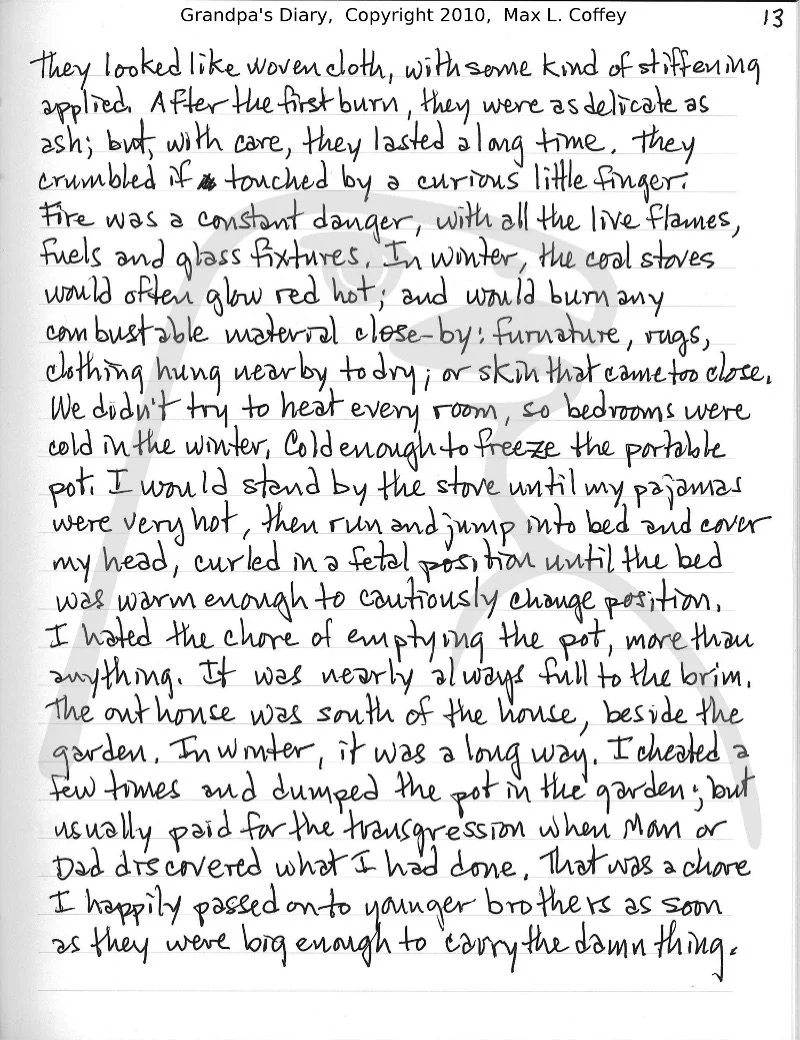 Grandpa's Diary, Copyright 2010, Max L. Coffey
13
they looked like woven cloth, with some kind of stiffening
applied. After the first burn, they were as delicate as
ash; but, with care, they lasted a long time. They
crumbled if touched by a curious little finger.
Fire was a constant danger, with all the live flames,
fuels and glass fixtures. In winter, the coal stoves
would often glow red hot; and would burn any
combustable material close-by: furnature, rugs,
clothing hung nearby to dry; or skin that came too close.
We didn't try to heat every room, so bedrooms were
cold in the winter. Cold enough to freeze the portable
pot. I would stand by the stove until my pajamas
were very hot, then run and jump into bed and cover
my head, curled in a fetal position until the bed
was warm enough to cautiously change position.
I hated the chore of emptying the pot, more than
anything. It was nearly always full to the brim.
The outhouse was south of the house, beside the
garden. In winter, it was a long way. I cheated a
few times and dumped the pot in the garden; but
usually paid for the transgression when Mom or
Dad discovered what I had done. That was a chore
I happily passed onto younger brothers as soon
as they were big enough to carry the damn thing.